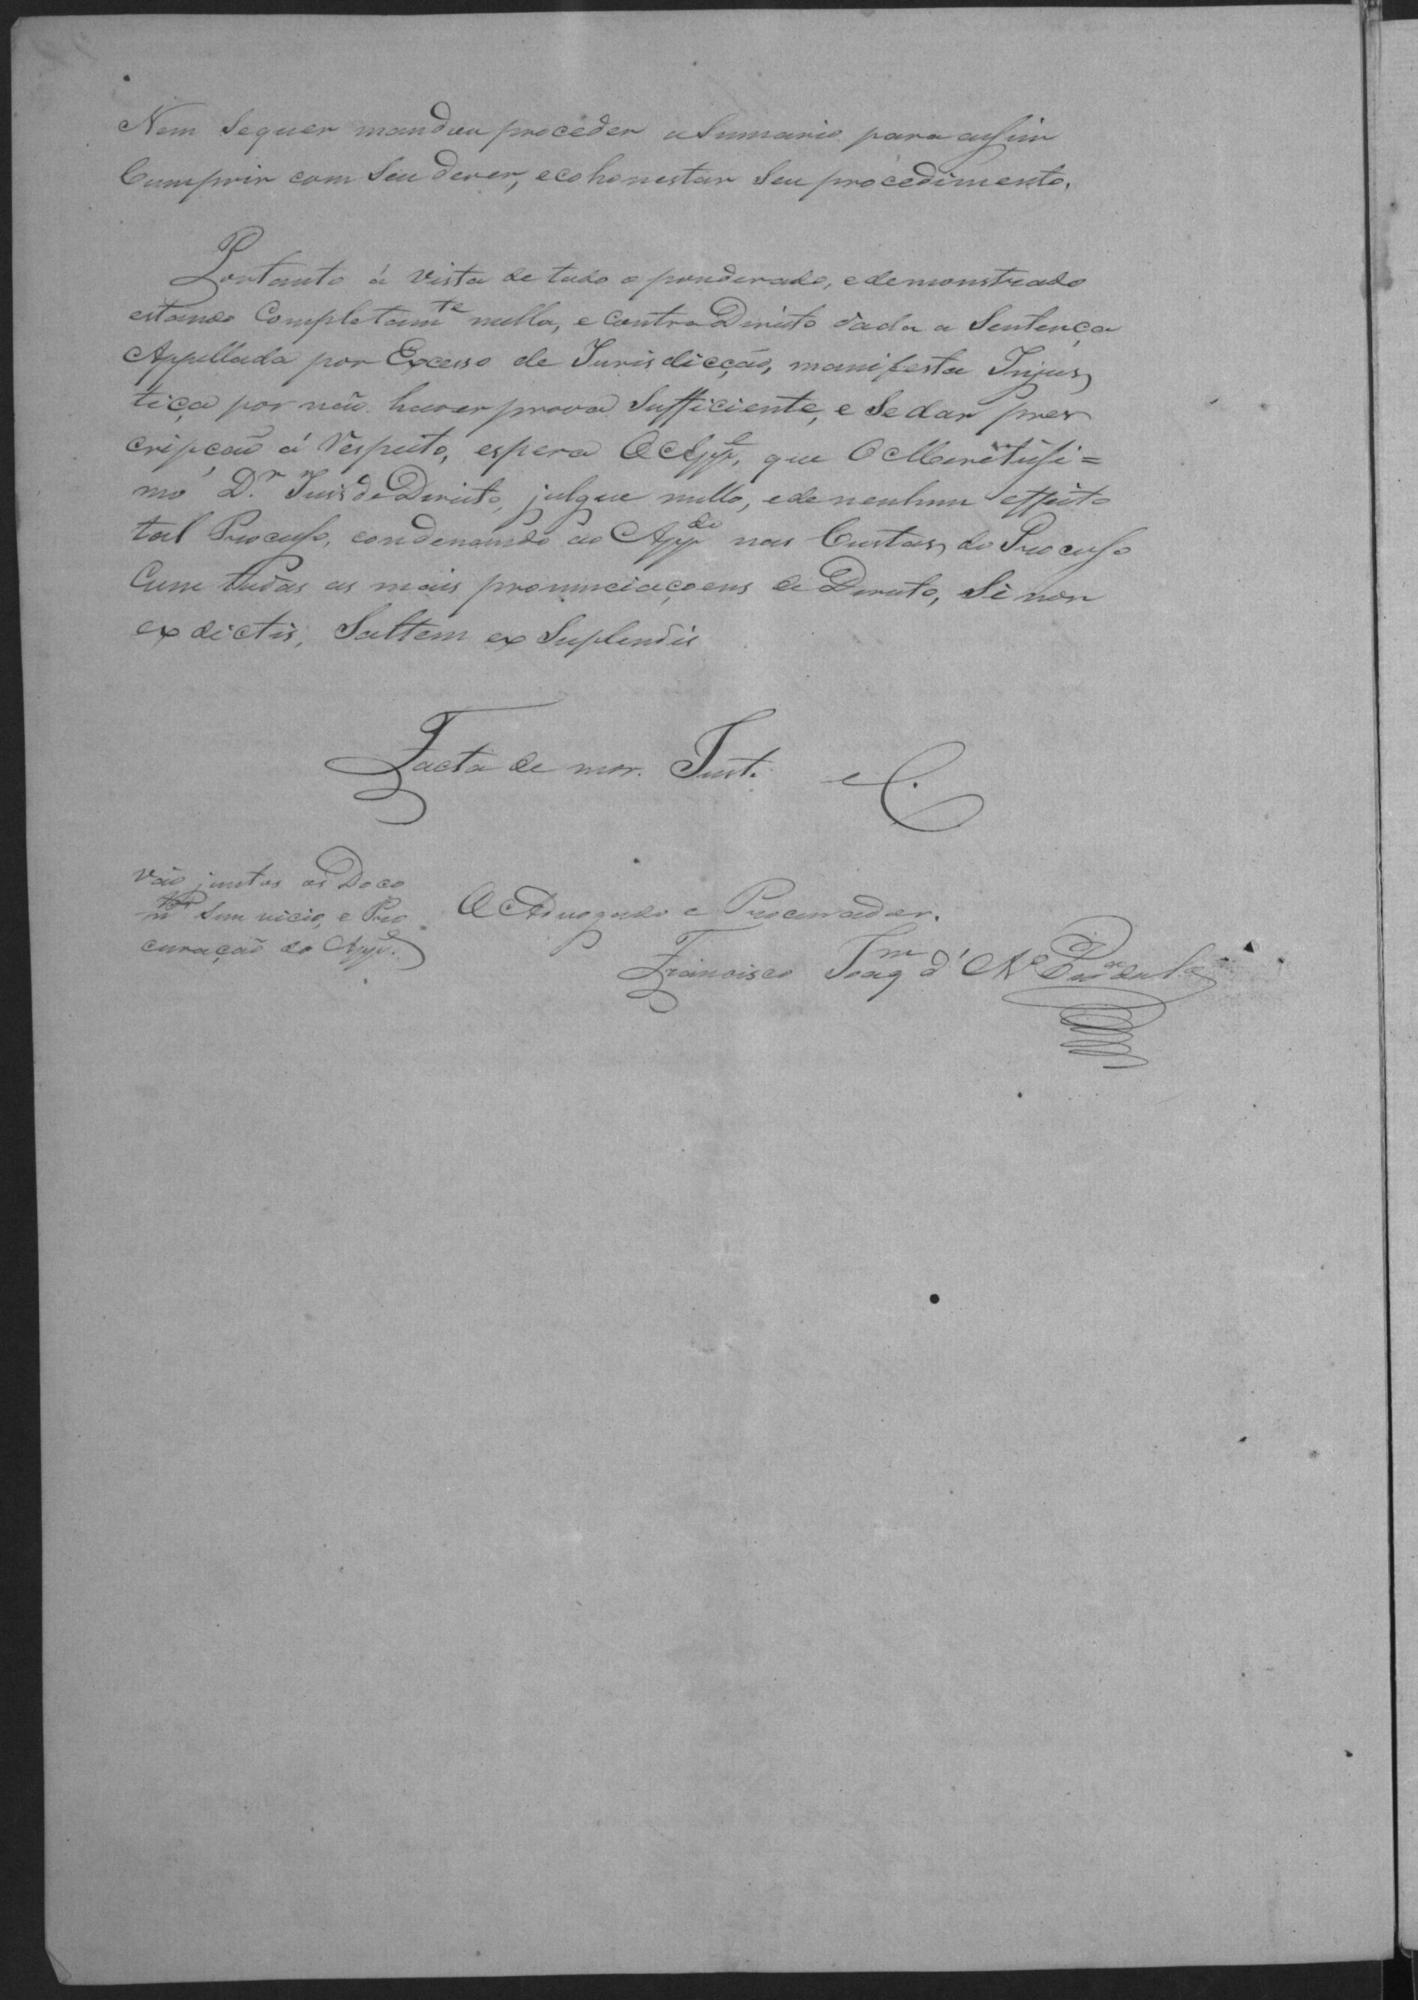 Nem sequer mandou proceder a Sumario para assim
Cumprir com Seu dever, e cohonestar Seu procedimento.
Portanto á vista de tudo o ponderado, e demonstrado
estando Completamte nulla, e Contra Direito dada a Sentença
Appellada por Excesso de Jurisdicção, manifesta Injus
tiça por não haver prova Sufficiente, e Se dar pres
cripção á Respeito, espera O Appe. que O Meretissi=
mo Dr. Juis de Direito, julgue nullo, e de nenhum effeito
tal Processo, condenando ao Appdo nas Custas do Processo
Com todas as mais pronunciaçoens de Direito, Si non
ex dictis, Saltem ex Suplendis
Facta de mor. Just.
Vão juntos os Doco
mtos Sem vicio, e Pro
curação do Appe.
O Advogado e Procurador.
Francisco Joaqm d'